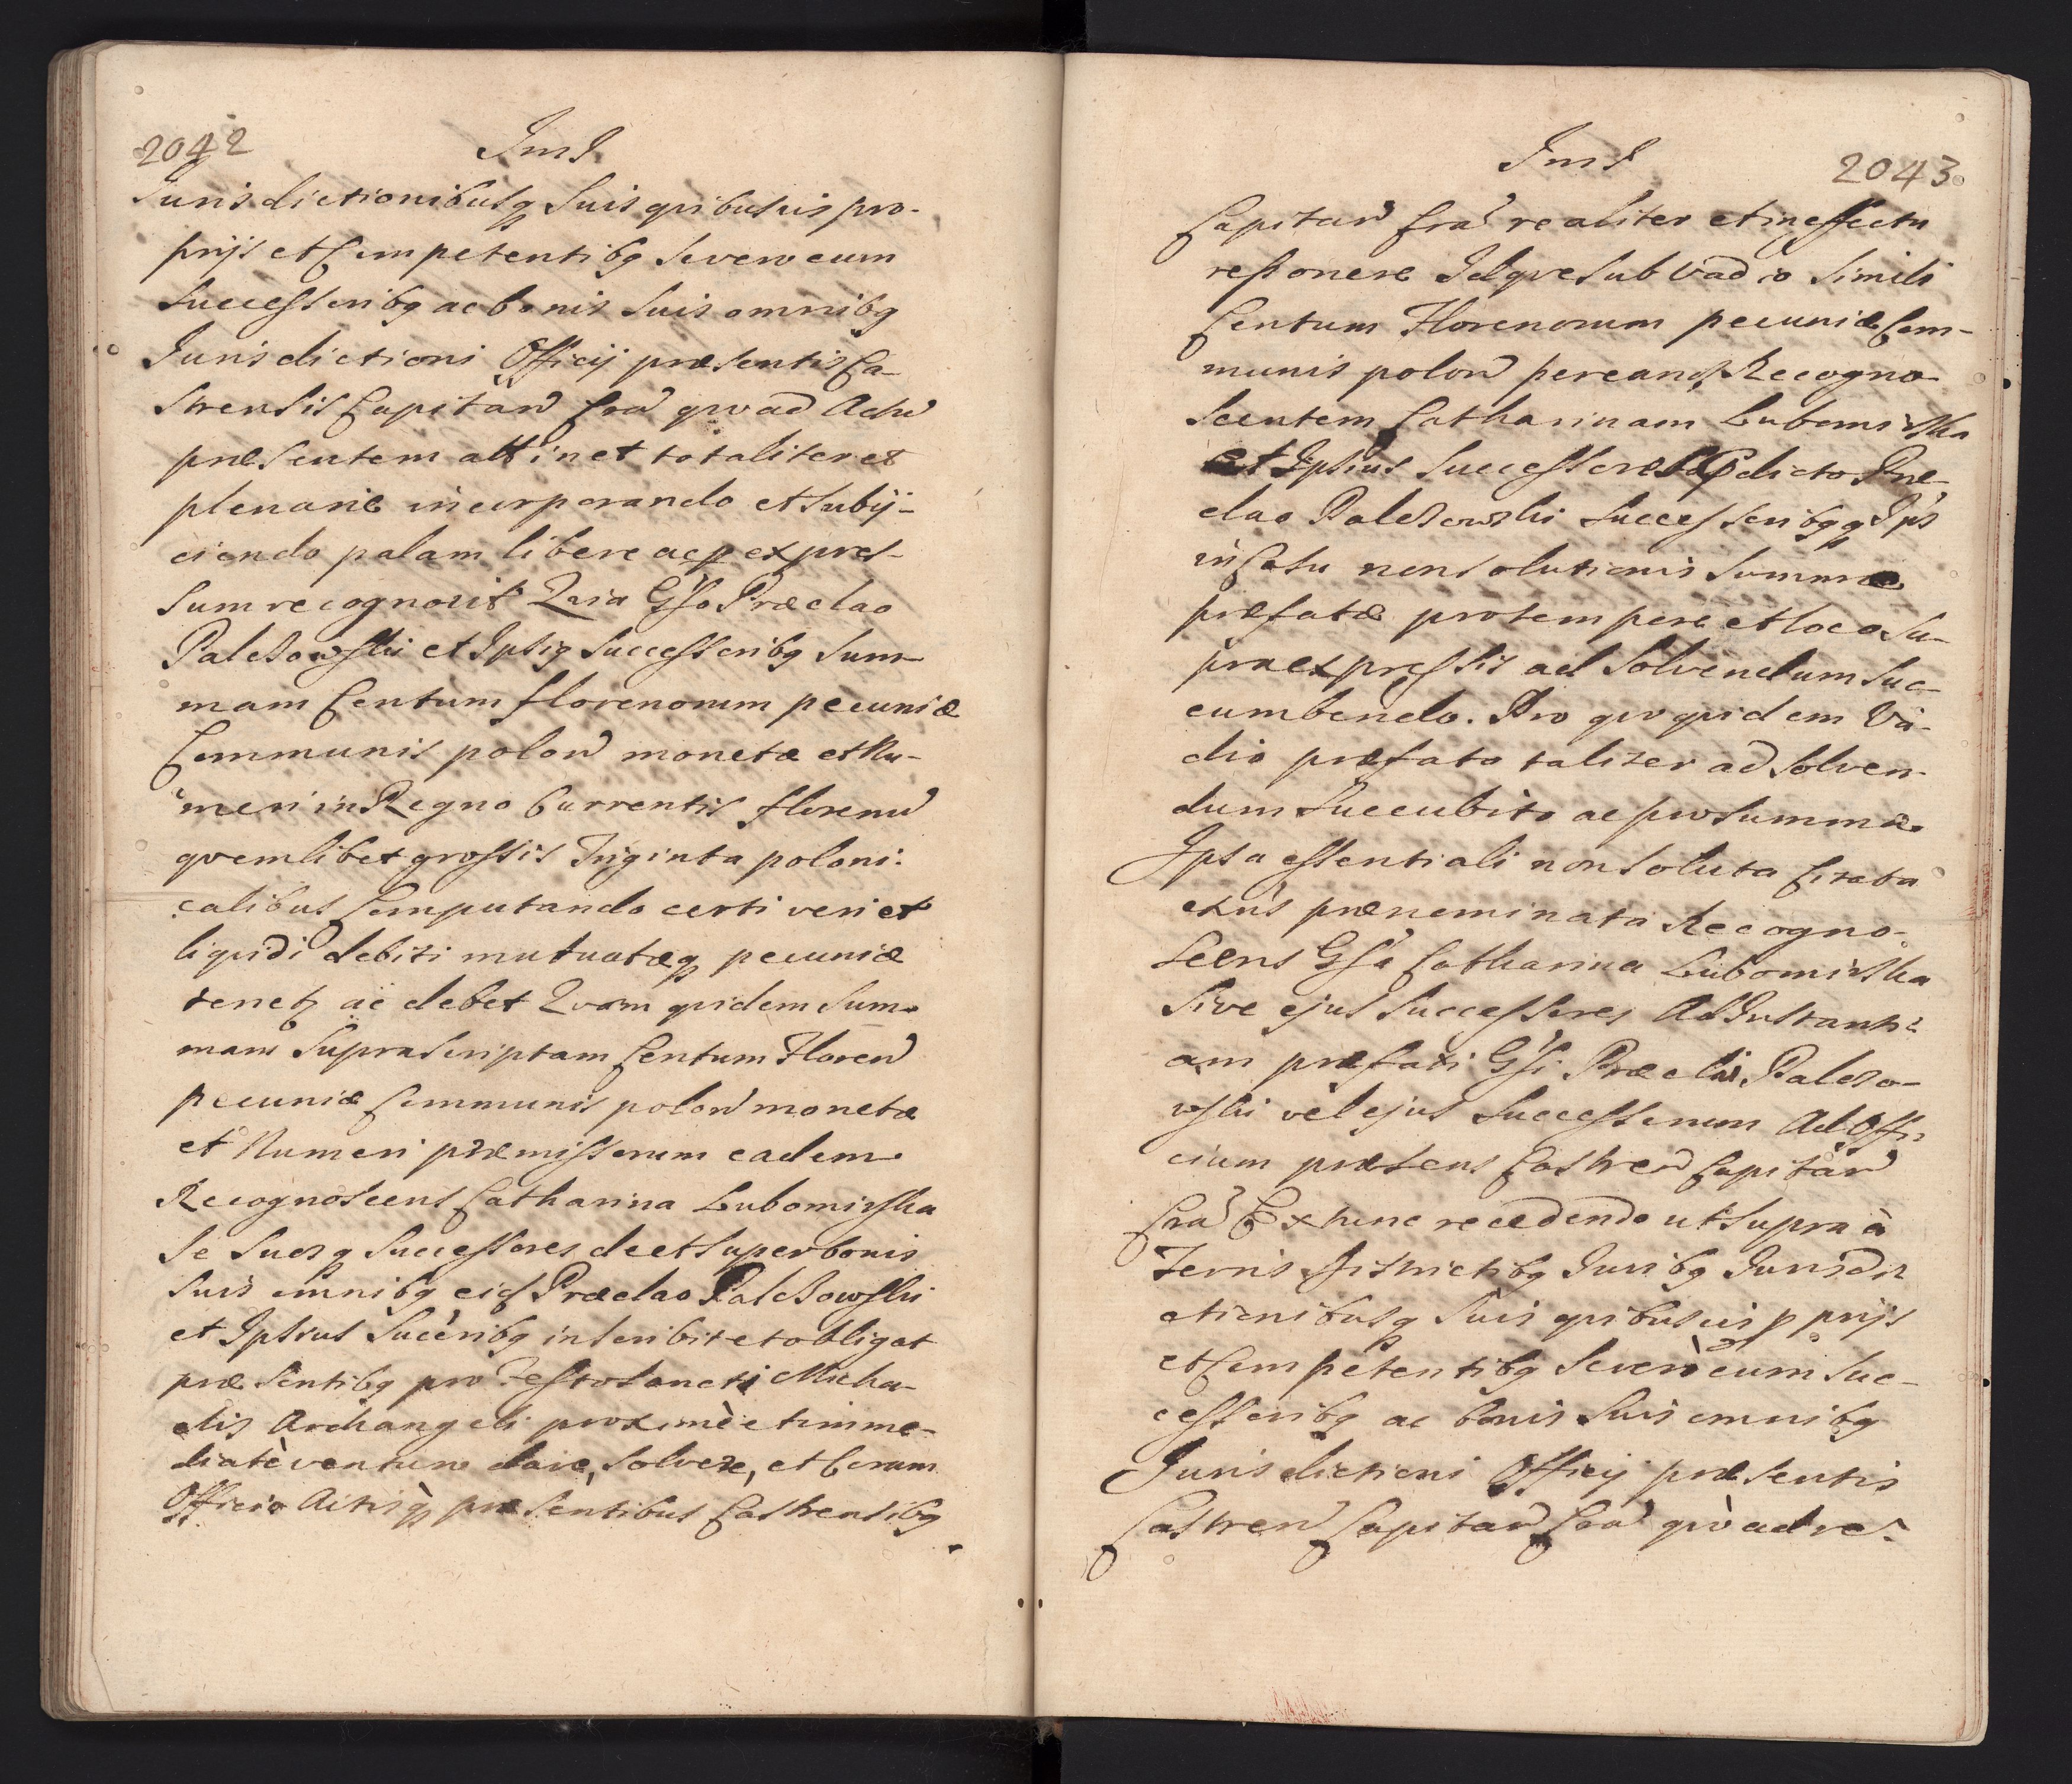 2042
Jms
Jurisdictionibusq suis quibusvis pro-
prijs et Competentibq severo cum
Successoribq ac bonis suis omnibq
Jurisdictioni Officij præsentis Ca-
strensis Capitan̄ Cra̅ quoad Actu̅
præsentem attinet totaliter et
plenarie incorporando et subij-
ciendo palam libere acq expres-
sum recognovit Quia Gſo Præclao
Palczowſki et Ipsiq Succeſſoribq Sum-
mam Centum florenorum pecuniæ
Communis polon̄ monetæ et Nu-
meri in Regno Currentis florenu̅
quemlibet groſsis Triginta poloni-
calibus Computando certi veri et
liquidi debiti mutuatæq pecuniæ
tenetʒ ac debet Quam quidem Sum-
mam Suprascriptam Centum Floren̄
pecuniæ Communis polon̄ monetæ
et Numeri præmiſsorum eadem
Recognoscens Catharina Lubomirſka
Se Suosq Succeſſores de et super bonis
suis omnibq eidʒ Præclao Palczowſki
et Ipsius Succ̀ribq inscribit et obligat
præsentibq pro Festo Sancti Micha-
elis Archangeli proximè et imme-
diatè venturo dare, solvere, et Coram
Officio Actisq̀ præsentibus Castrensibq
Jms
2043
Capitan̄ Cra̅ realiter et in effectu
reponere Idque sub Vadio simili
Centum Florenorum pecuniæ Com-
munis polon̄ per eandʒ Recogno-
scentem Catharinam Lubomirska
et Ipsius Succeſſores Pdicto Præ-
clao Palczowski Succeſsoribqq Ips̀
in Casu non solutionis Summæ
præfatæ pro tempore et loco su-
praexpreſsis ad solvendum suc-
cumbendo. Pro quo quidem Va-
dio præfato taliter ad solven-
dum Succubito ac pro summa
Ipsa eſsentiali non soluta Citata
exùs prænominata Recogno-
scens Gſa Catharina Lubomirska
sive ejus Succeſsores Ad Instanti-
am præfati Gſi Præclai Palczo-
wſki vel ejus Succeſsorum Ad Offi-
cium præsens Castren̄ Capitan̄
Cra̅ Ex hunc recedendo ut supra à
Terris Districtibq Juribq Jurisdi-
ctionibusq suis quibusvis pprijs
et Competentibq severò cum Suc-
ceſsoribq ac bonis suis omnibq
Jurisdictioni Officij præsentis
Castren̄ Capitan̄ Cra̅ quò ad re-